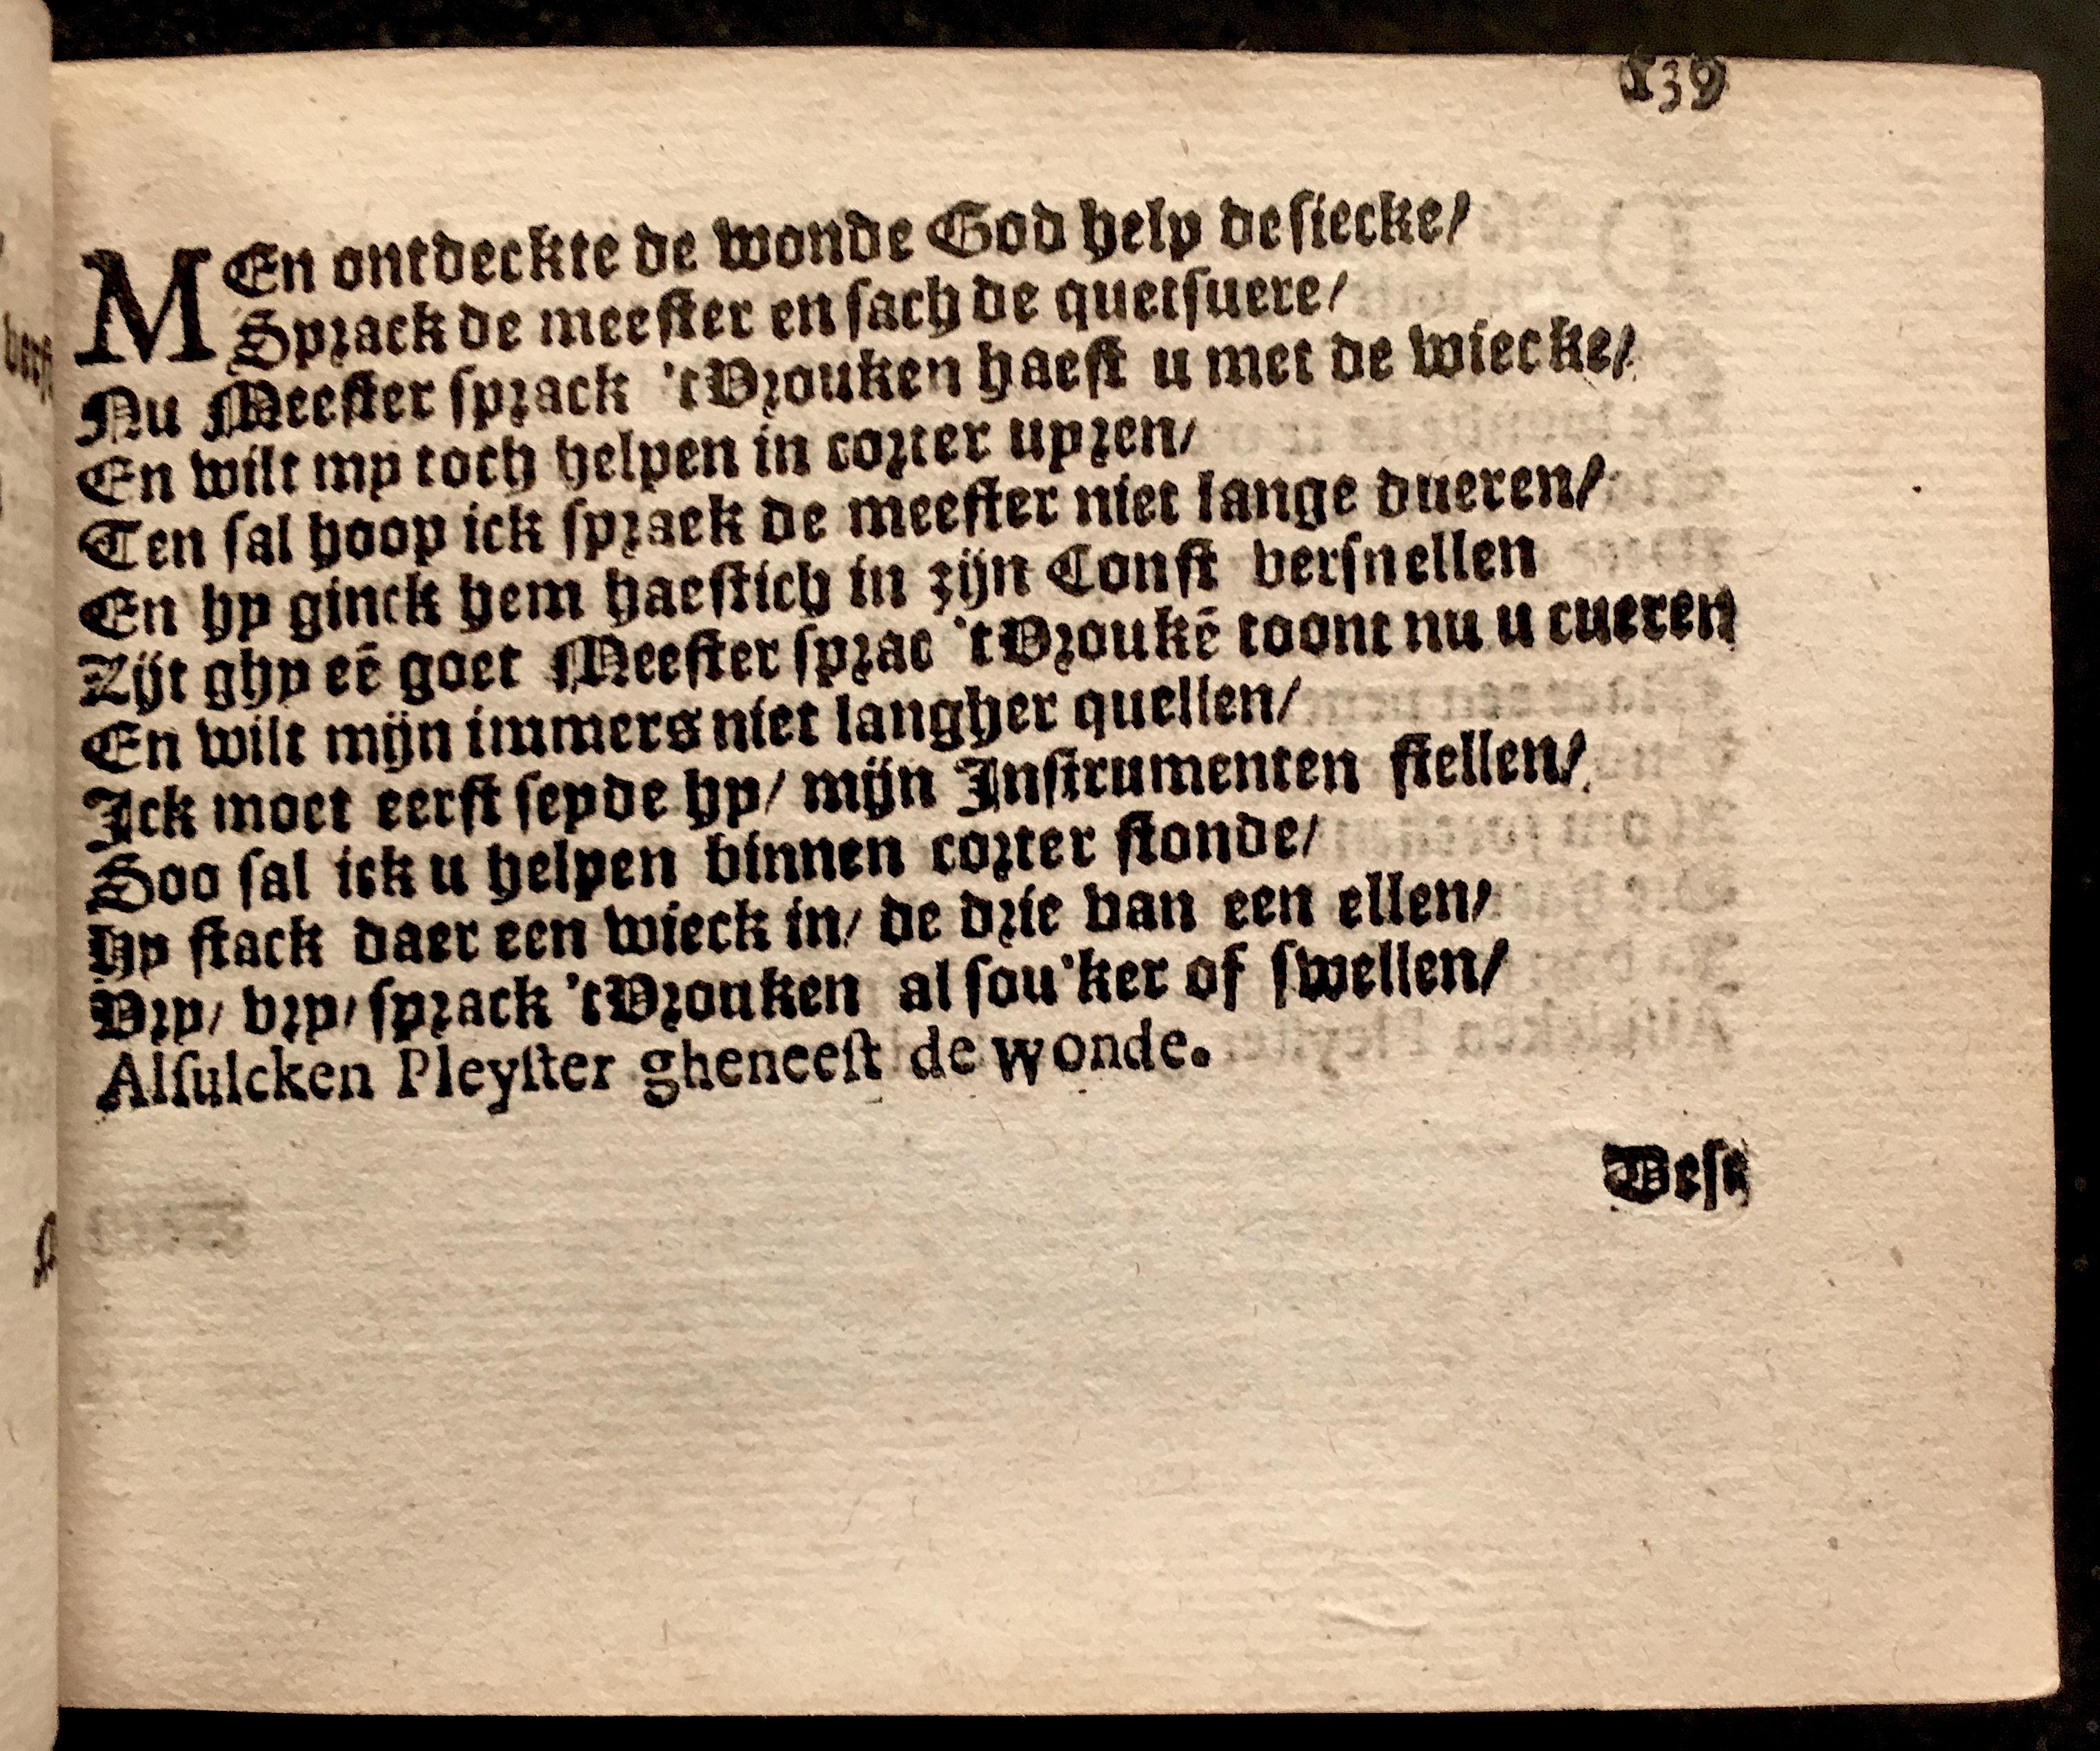 139
MEn ontdeckte de wonde God help de siecke/
Sprack de meester en sach de quetsuere/
Nu Meester sprack 't Vrouken haest u met de wiecke/
En wilt my toch helpen in corter uyren/
Ten sal hoop ick spraek de meester niet lange dueren/
En hy ginck hem haestich in zijn Const versnellen
Zijt ghy eē goet Meester sprac 't Vroukē toont nu u cueren
En wilt mijn immers niet langher quellen/
Ick moet eerst seyde hy/ mijn Instrumenten stellen/
Soo sal ick u helpen binnen corter stonde/
Hy stack daer een wieck in/ de drie van een ellen/
Vry/ vry/ sprack 't Vrouken al sou'ker of swellen/
Alsulcken Pleyster gheneest de wonde.
Dese